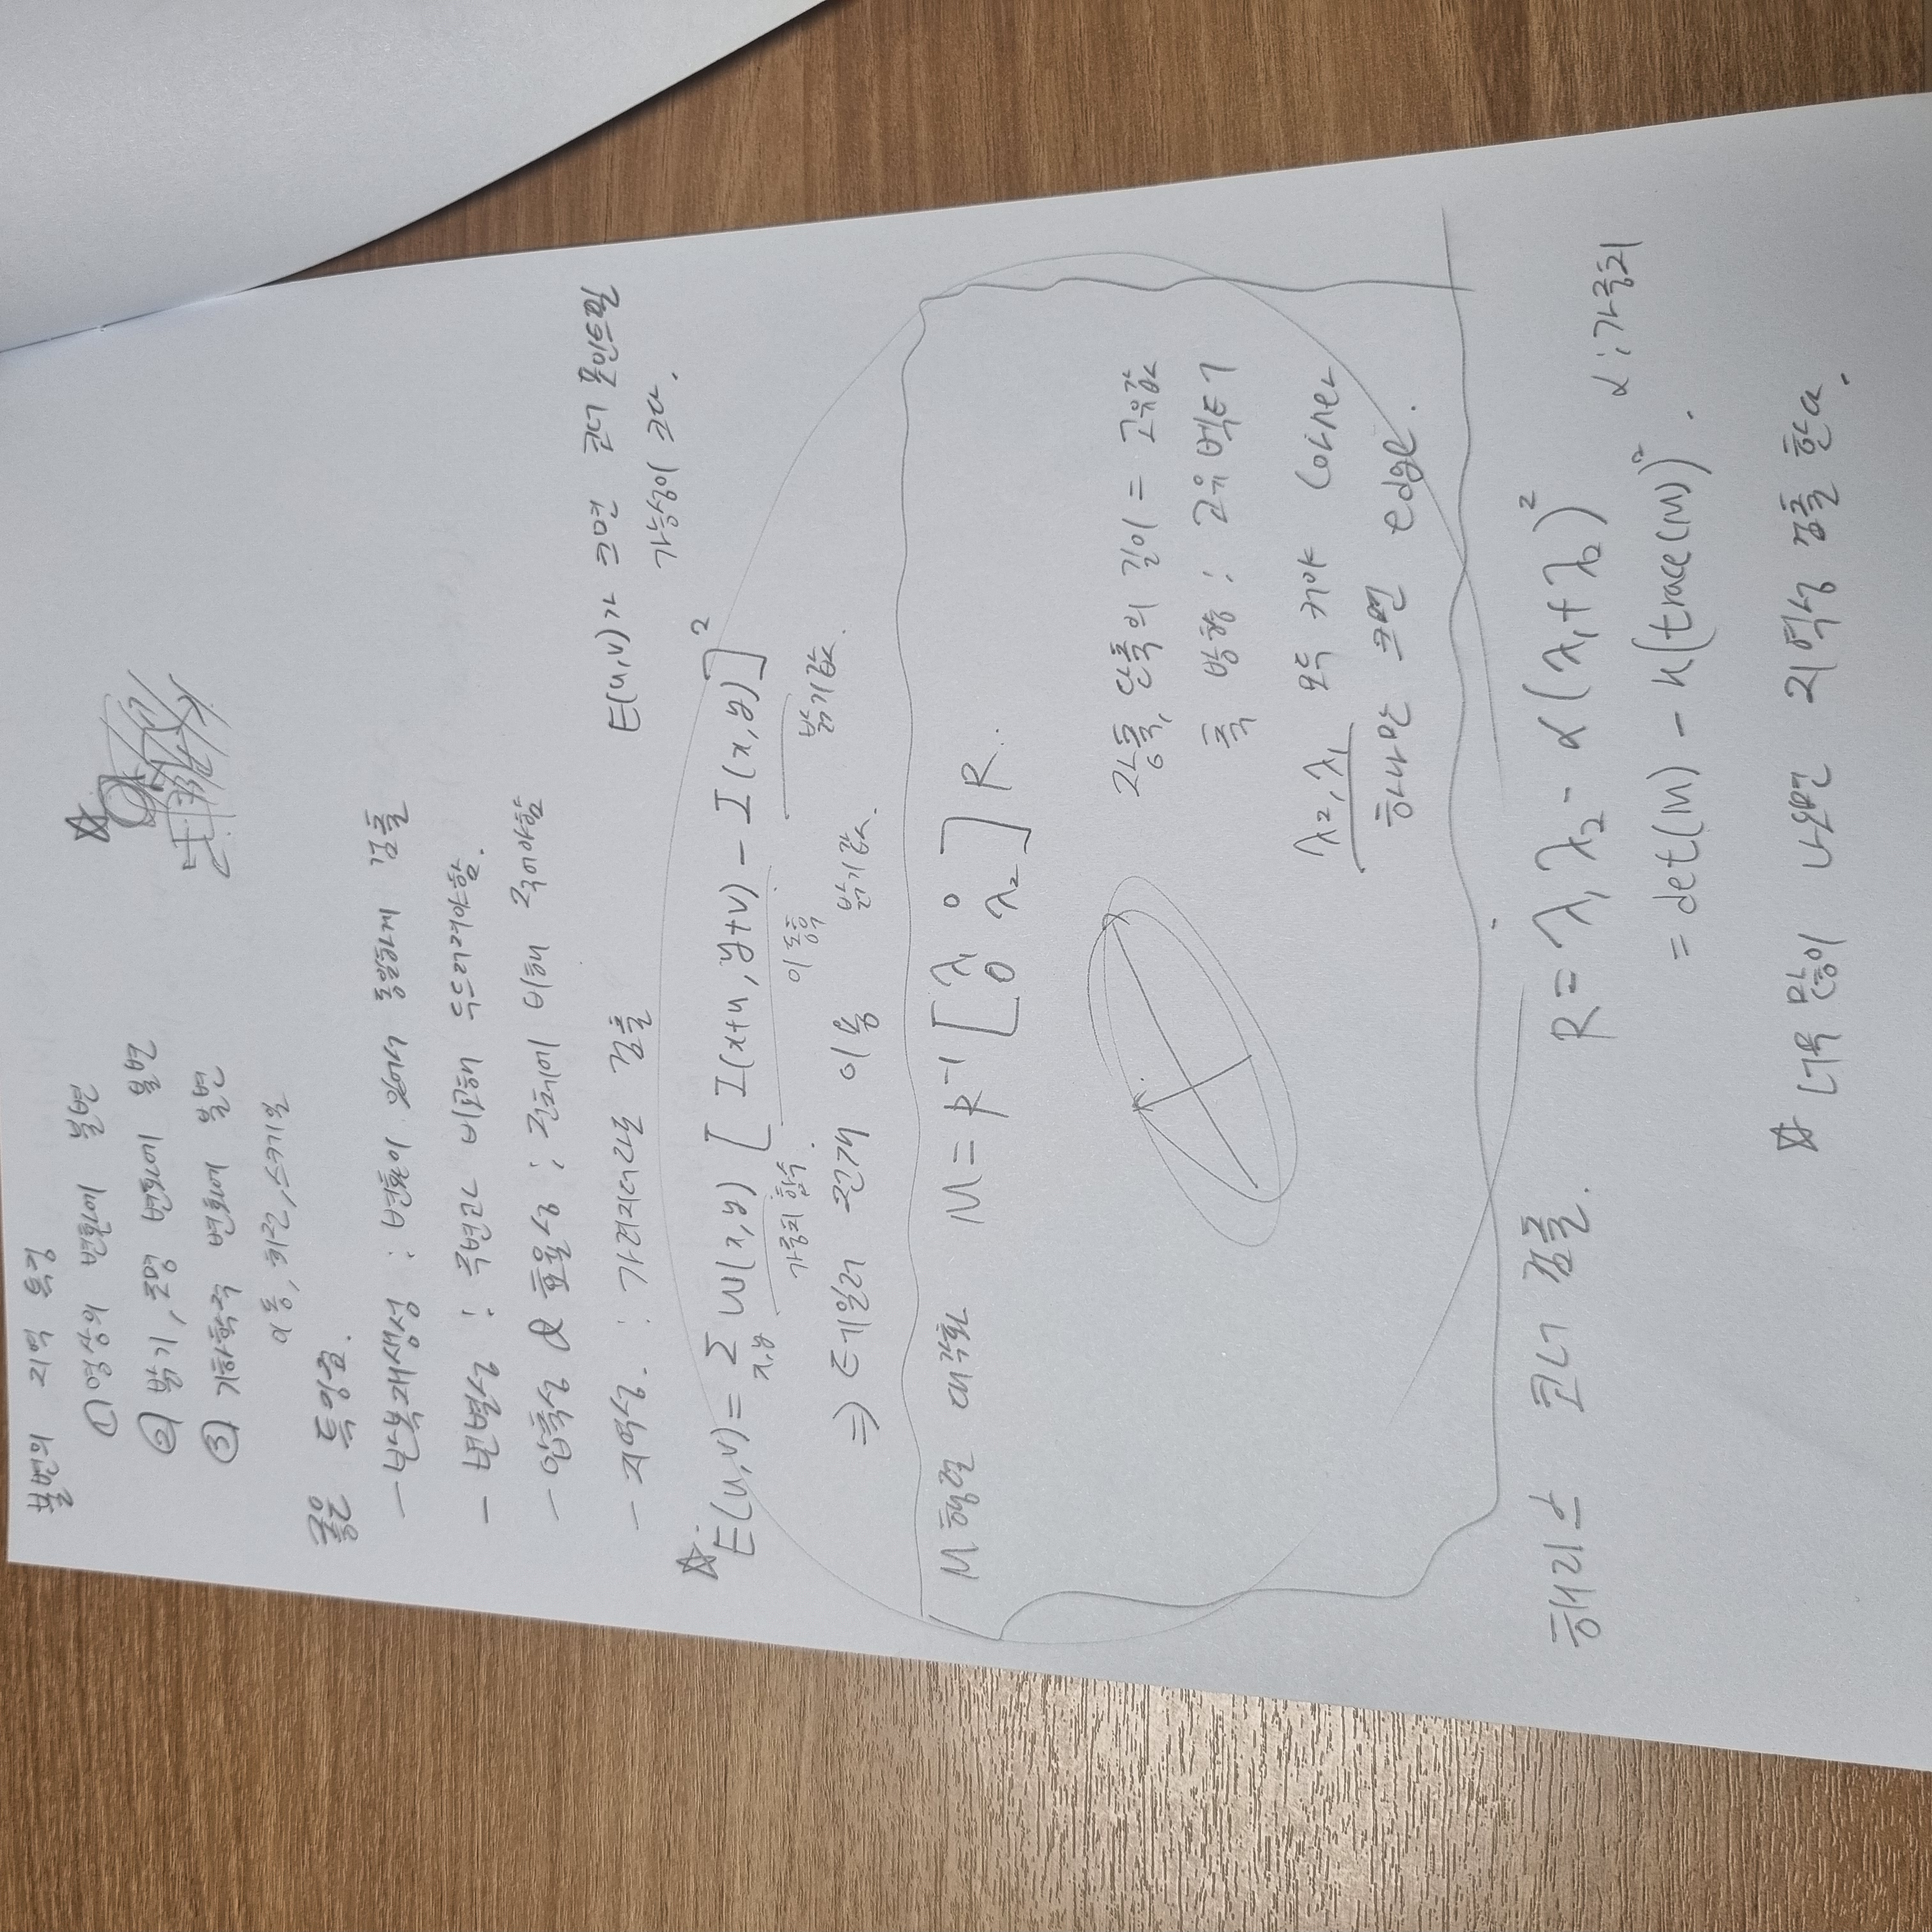 불변의 지역 특징
① 영상의 변환에 불변
② 밝기, 조명 변화에 불변
③ 기하학적 변화에 불변
이동, 회전, 스케일
좋은 특징점.
- 반복재생성 : 변환이 있어서 동일하게 검출
- 변별성 : 주변과 비교해 두드러져야함.
- 압축성 & 효율성 ; 전체에 비해 적어야함
- 지역성. : 가려지더라도 검출
E(u,v)가 크면 코너 포인트일
가능성이 크다.
☆ E(u,v) = Σ W(x,y) [ I(x+u, y+v) - I(x,y) ]²
x,y
가중치 함수. 이동후 밝기값.
⇒ 테일러 전개 이용 밝기값.
M 행렬 대각화 M = R⁻¹ [ λ₁ 0
0 λ₂ ] R..
장축, 단축의 길이 = 고유값
축 방향 : 고유벡터
λ₂, λ₁ 모두 커야 corner
하나만 크면 edge.
해리스 코너 검출.
R = λ₁ λ₂ - α(λ₁+λ₂)²
α ; 가중치
= det(M) - k(trace(M))².
☆ 너무 많이 나오면 지역성 검출 한다.